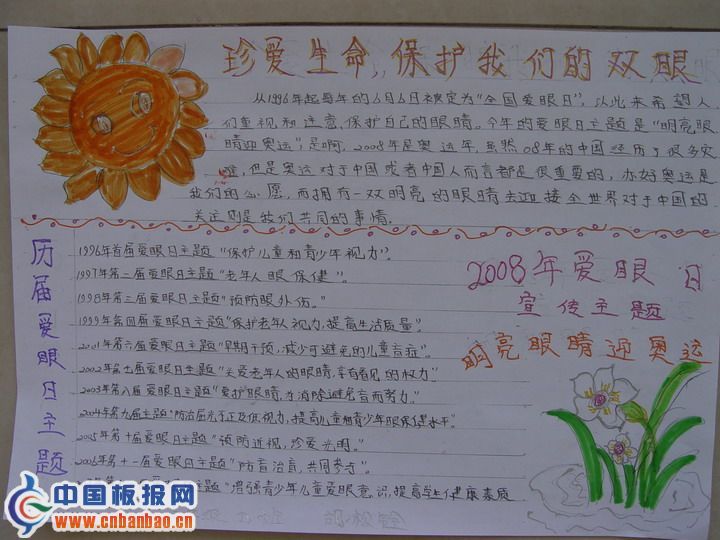 珍爱生命,保护我们的双眼
从1996年起每年的6月6日被定为"全国爱眼日",以此来希望人
们重视和注意,保护自己的眼睛。今年的爱眼日主题是"明亮眼
睛迎奥运";是啊,2008年是奥运年,虽然08年的中国经历了很多灾
难,但是奥运对于中国或者中国人而言都是很重要的,办好奥运是
我们的心愿,而拥有一双明亮的眼睛去迎接全世界对于中国的
关注则是我们共同的事情.
历届爱眼日主题
1996年首届爱眼日主题"保护儿童和青少年视力"。
1997年第二届爱眼日主题"老年人眼保健"。
1998年第三届爱眼日主题"预防眼外伤。"
1999年第四届爱眼日主题"保护老年人视力,提高生活质量"。
2001年第六届爱眼日主题"早期干预,减少可避免的儿童盲症"。
2002年第七届爱眼日主题"关爱老年人的眼睛,享有看见的权力"
2003年第八届爱眼日主题"爱护眼睛,为消除避免盲而努力。"
2004年第九届主题"防治屈光不正及低视力,提高儿童和青少年眼保健水平"
2005年第十届爱眼日主题"预防近视,珍爱光明。"
2006年第十一届爱眼日主题"防盲治盲,共同参与"。
主题"增强青少年儿童爱眼意识,提高学生健康素质
2008年爱眼日
宣传主题
明亮眼睛迎奥运
中国板报网
www.cnbanbao.cn